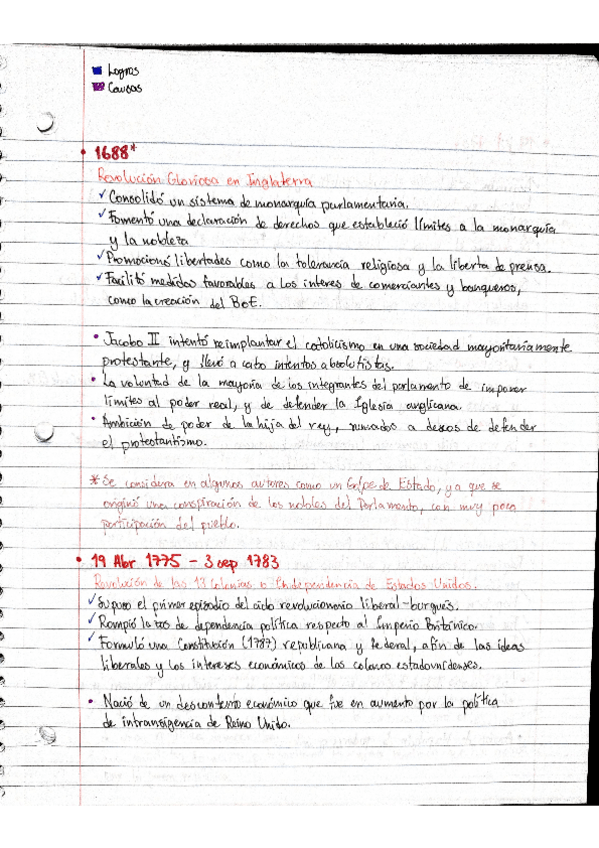 Logros
Causas
• 1688*
Revolución Gloriosa en Inglaterra
✓ Consolidó un sistema de monarquía parlamentaria.
✓ Fomentó una declaración de derechos que estableció límites a la monarquía
y la nobleza
✓ Promocionó libertades como la tolerancia religiosa y la liberta de prensa.
✓ Facilitó medidas favorables a los interes de comerciantes y banqueros,
como la creación del BoE.
• Jacobo II intentó reimplantar el catolicismo en una sociedad mayoritariamente
protestante, y llevó a cabo intentos absolutistas.
• La voluntad de la mayoría de los integrantes del parlamento de imponer
límites al poder real, y de defender la Iglesia anglicana.
• Ambición de poder de la hija del rey, sumados a deseos de defender
el protestantismo.
* Se considera en algunos autores como un Golpe de Estado, ya que se
originó una conspiración de los nobles del Parlamento, con muy poca
participación del pueblo.
• 19 Abr 1775 - 3 sep 1783
Revolución de las 13 Colonias o Independencia de Estados Unidos.
✓ Supuso el primer episodio del ciclo revolucionario liberal-burgués.
✓ Rompió lazos de dependencia política respecto al Imperio Británico.
✓ Formuló una Constitución (1787) republicana y federal, afín de las ideas
liberales y los intereses económicos de los colonos estadounidenses.
• Nació de un descontento económico que fue en aumento por la política
de intransigencia de Reino Unido.